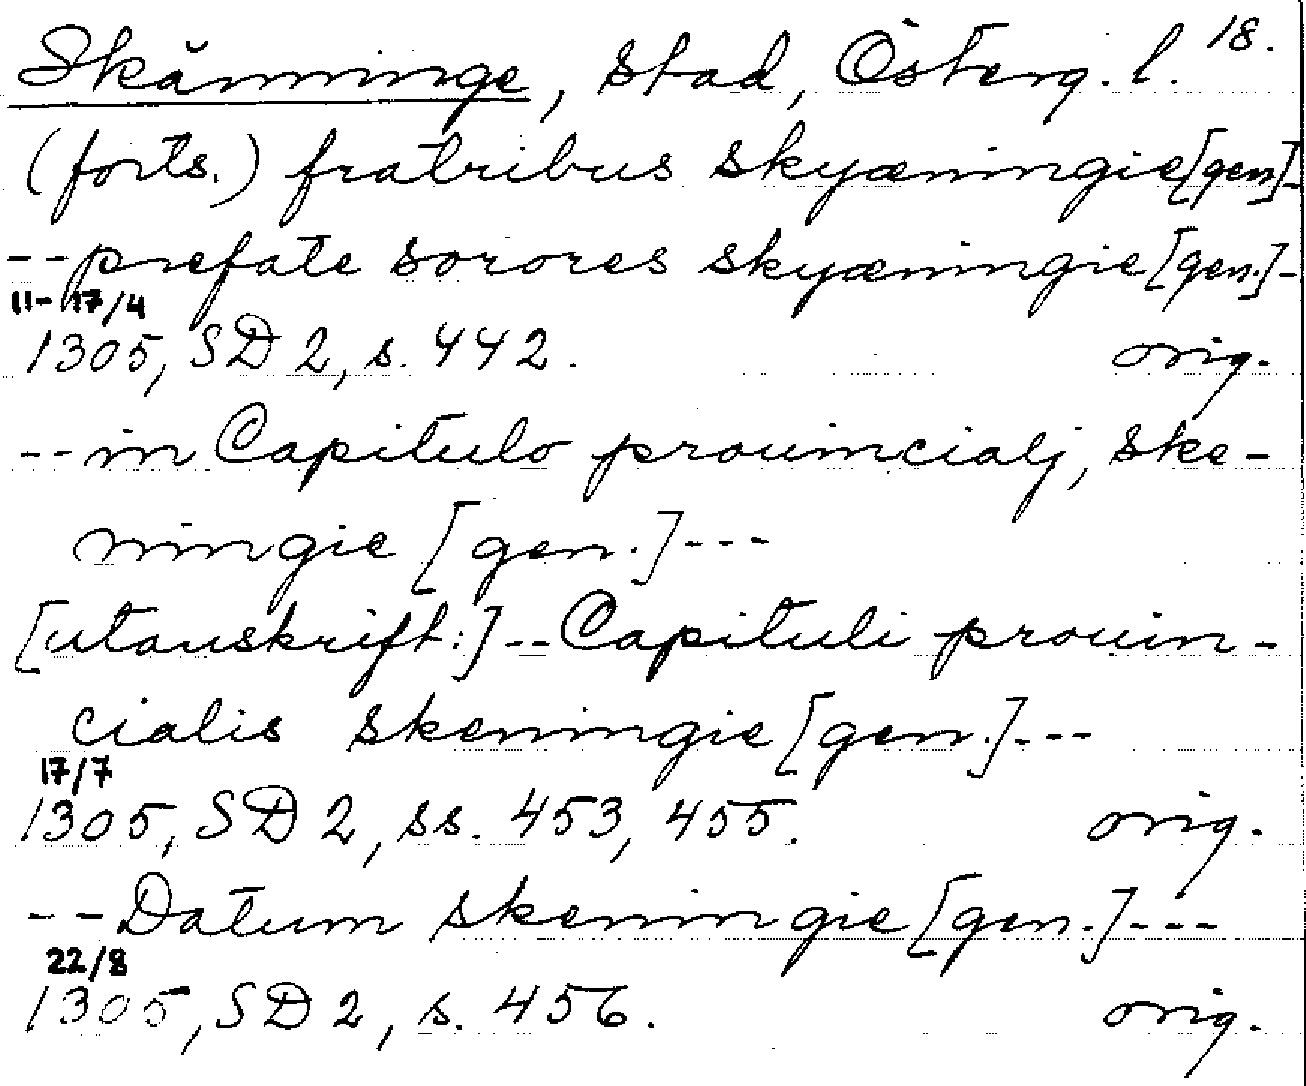 Skänninge, stad, Österg. l. 18.
(forts.) fratribus skyæningie [gen]-
--prefate sorores skyæningie [gen.]-
11-17/4
1305, SD 2, s. 442. orig.
--in Capitulo prouincialj, ske-
ningie [gen.]---
[utanskrift:]--Capituli prouin-
cialis skeningie [gen.]---
17/7
1305, SD 2, ss. 453, 455. orig.
--Datum skeningie [gen.]---
22/8
1305, SD 2, s. 456. orig.